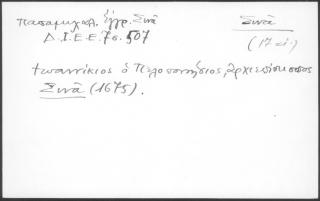 Παπαμιχαλ. Ἔγγρ. Σινᾶ
Σινᾶ
Δ.Ι.Ε.Ε. 7ος. 507
(17 αἰ.)
Ἰωαννίκιος ὁ Πελοποννήσιος, ἀρχιεπίσκοπος
Σινᾶ (1675).